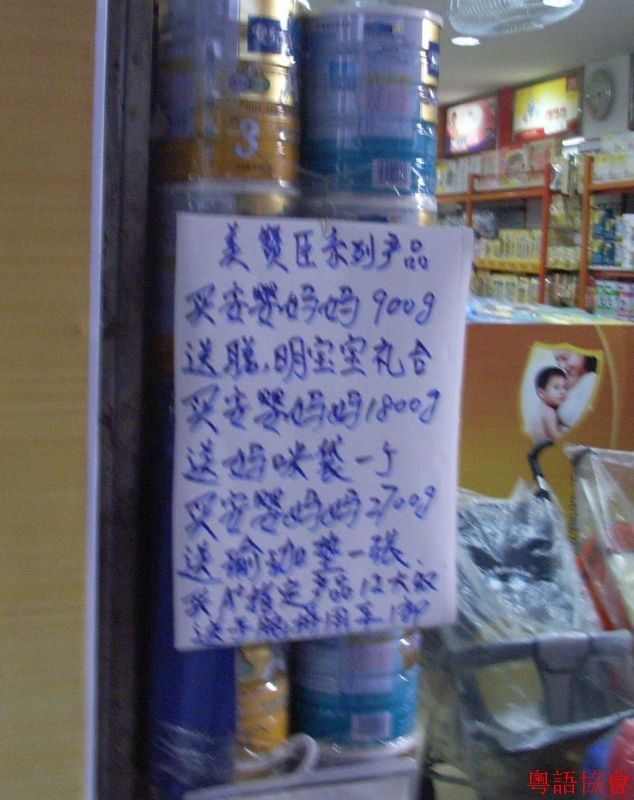 3
美赞臣系列产品
买安婴妈妈900g
送聪明宝宝礼合
买安婴妈妈1800g
送妈咪袋一个
买安婴妈妈2700g
送瑜珈垫一张.
买A+指定产品12大
送多用车1部
粵語協會